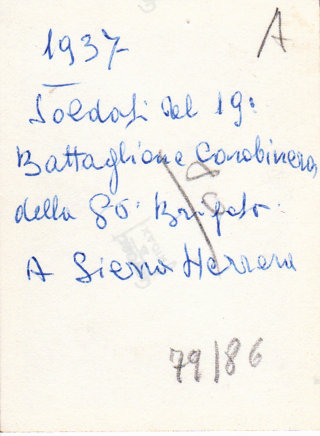 1937
A
Soldati del 19:
Battaglione Carabinero
della 86. Brigata.
A Sierra Herrera
79/86